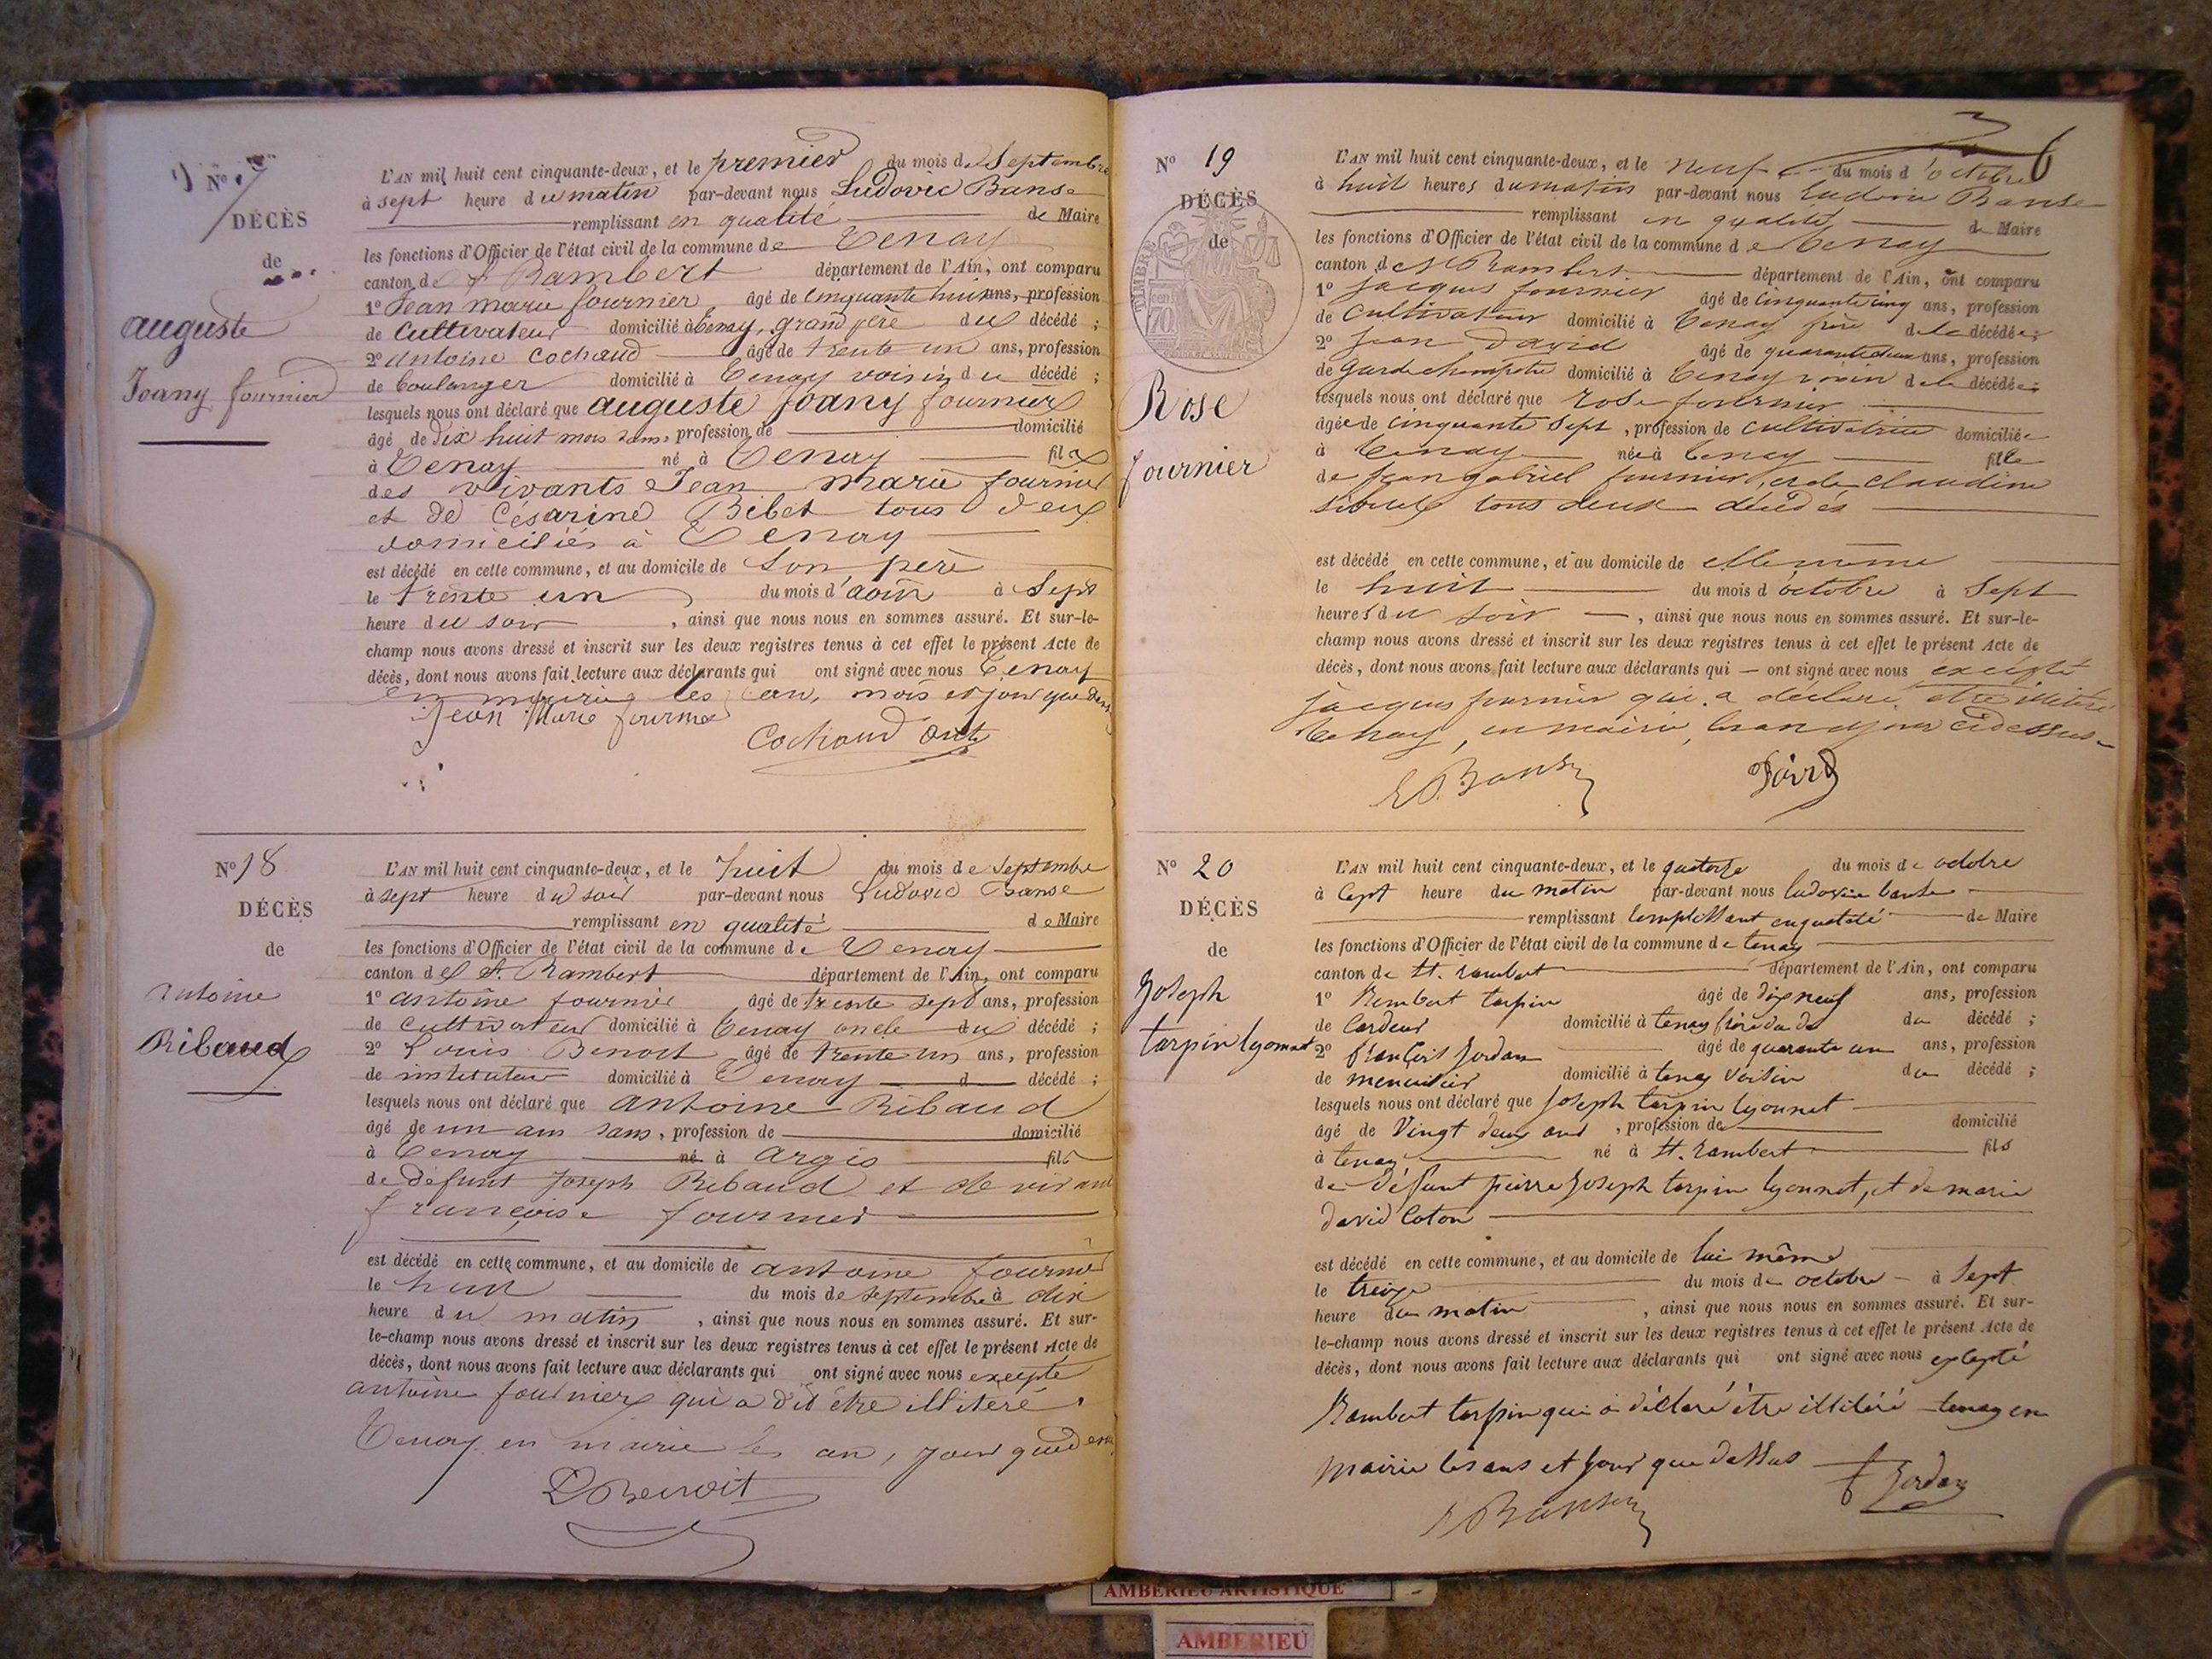 No 17
DÉCÈS
de
auguste
Joany fournier
L'AN mil huit cent cinquante-deux, et le premier du mois de Septembre
à sept heure du matin par-devant nous Ludovic Banse
remplissant en qualité de Maire
les fonctions d'Officier de l'état civil de la commune de Tenay
canton de St Rambert département de l'Ain, ont comparu
1o Jean marie fournier, âgé de cinquante huit ans, profession
de Cultivateur domicilié à Tenay, grand père du décédé ;
2o Antoine Cochaud âgé de trente un ans, profession
de boulanger domicilié à Tenay voisin du décédé ;
lesquels nous ont déclaré que auguste Joany fournier
âgé de dix huit mois sans, profession de domicilié
à Tenay né à Tenay fils
des vivants Jean marie fournier
et de Césarine Bibet tous deux
domiciliés à Tenay
est décédé en cette commune, et au domicile de son père
le trente un du mois d'août à Sept
heure du soir, ainsi que nous nous en sommes assuré. Et sur-le-
champ nous avons dressé et inscrit sur les deux registres tenus à cet effet le présent Acte de
décès, dont nous avons fait lecture aux déclarants qui ont signé avec nous Tenay
en mairie les an, mois et jour que dess
Jean Marie fournier
Cochaud ant
No 18
DÉCÈS
de
Antoine
Ribaud
L'AN mil huit cent cinquante-deux, et le huit du mois de Septembre
à sept heure du soir par-devant nous Ludovic Banse
remplissant en qualité de Maire
les fonctions d'Officier de l'état civil de la commune de Tenay
canton de St. Rambert département de l'Ain, ont comparu
1o antoine fournier âgé de trente sept ans, profession
de cultivateur domicilié à Tenay oncle du décédé ;
2o Louis Benoit âgé de trente un ans, profession
de instituteur domicilié à Tenay d décédé ;
lesquels nous ont déclaré que antoine Ribaud
âgé de un an sans, profession de domicilié
à Tenay né à argis fils
de défunt Joseph Ribaud et de vivant
françoise fournier
est décédé en cette commune, et au domicile de antoine fournier
le huit du mois de septembre à dix
heure du matin, ainsi que nous nous en sommes assuré. Et sur-
le-champ nous avons dressé et inscrit sur les deux registres tenus à cet effet le présent Acte de
décès, dont nous avons fait lecture aux déclarants qui ont signé avec nous excepté
antoine fournier qui a dit être illitéré.
Tenay en mairie les an, jour que dess
L Benoit
6
No 19
DÉCÈS
de
Rose
fournier
L'AN mil huit cent cinquante-deux, et le neuf du mois d'octobre
à huit heures du matin par-devant nous Ludovic Banse
remplissant en qualité de Maire
les fonctions d'Officier de l'état civil de la commune de Tenay
canton de St Rambert département de l'Ain, ont comparu
1o jacques fournier âgé de cinquante cinq ans, profession
de Cultivateur domicilié à Tenay frère de la décédée ;
2o jean David âgé de quarante deux ans, profession
de garde champêtre domicilié à Tenay voisin de la décédée ;
lesquels nous ont déclaré que rose fournier
âgée de cinquante sept, profession de cultivatrice domiciliée
à Tenay née à Tenay fille
de jean gabriel fournier, et de claudine
tous deux décédés
est décédé en cette commune, et au domicile de elle même
le huit du mois d'octobre à Sept
heures du soir, ainsi que nous nous en sommes assuré. Et sur-le-
champ nous avons dressé et inscrit sur les deux registres tenus à cet effet le présent Acte de
décès, dont nous avons fait lecture aux déclarants qui ont signé avec nous excepté
jacques fournier qui a déclaré être illitéré
Tenay, en mairie, les an et jour ci dessus
Banse
No 20
DÉCÈS
de
Joseph
tarpin lyonnet
L'AN mil huit cent cinquante-deux, et le quatorze du mois de octobre
à Cept heure du matin par-devant nous ludovic banse
remplissant remplissant en qualité de Maire
les fonctions d'Officier de l'état civil de la commune de tenay
canton de St. rambert département de l'Ain, ont comparu
1o Rambert tarpin âgé de dix neuf ans, profession
de Cardeur domicilié à tenay frère du du décédé ;
2o françois Jordan âgé de quarante un ans, profession
de menuisier domicilié à tenay voisin du décédé ;
lesquels nous ont déclaré que Joseph tarpin lyonnet
âgé de Vingt deux ans, profession de domicilié
à tenay né à St. rambert fils
de défunt pierre Joseph tarpin lyonnet, et de marie
david Coton
est décédé en cette commune, et au domicile de lui même
le treize du mois de octobre à Sept
heure du matin, ainsi que nous nous en sommes assuré. Et sur-
le-champ nous avons dressé et inscrit sur les deux registres tenus à cet effet le présent Acte de
décès, dont nous avons fait lecture aux déclarants qui ont signé avec nous excepté
Rambert tarpin qui a déclaré être illitéré tenay en
Mairie les ans et Jour que dessus
f Jordan
Banse
AMBERIEU ARTISTIQUE
AMBERIEU